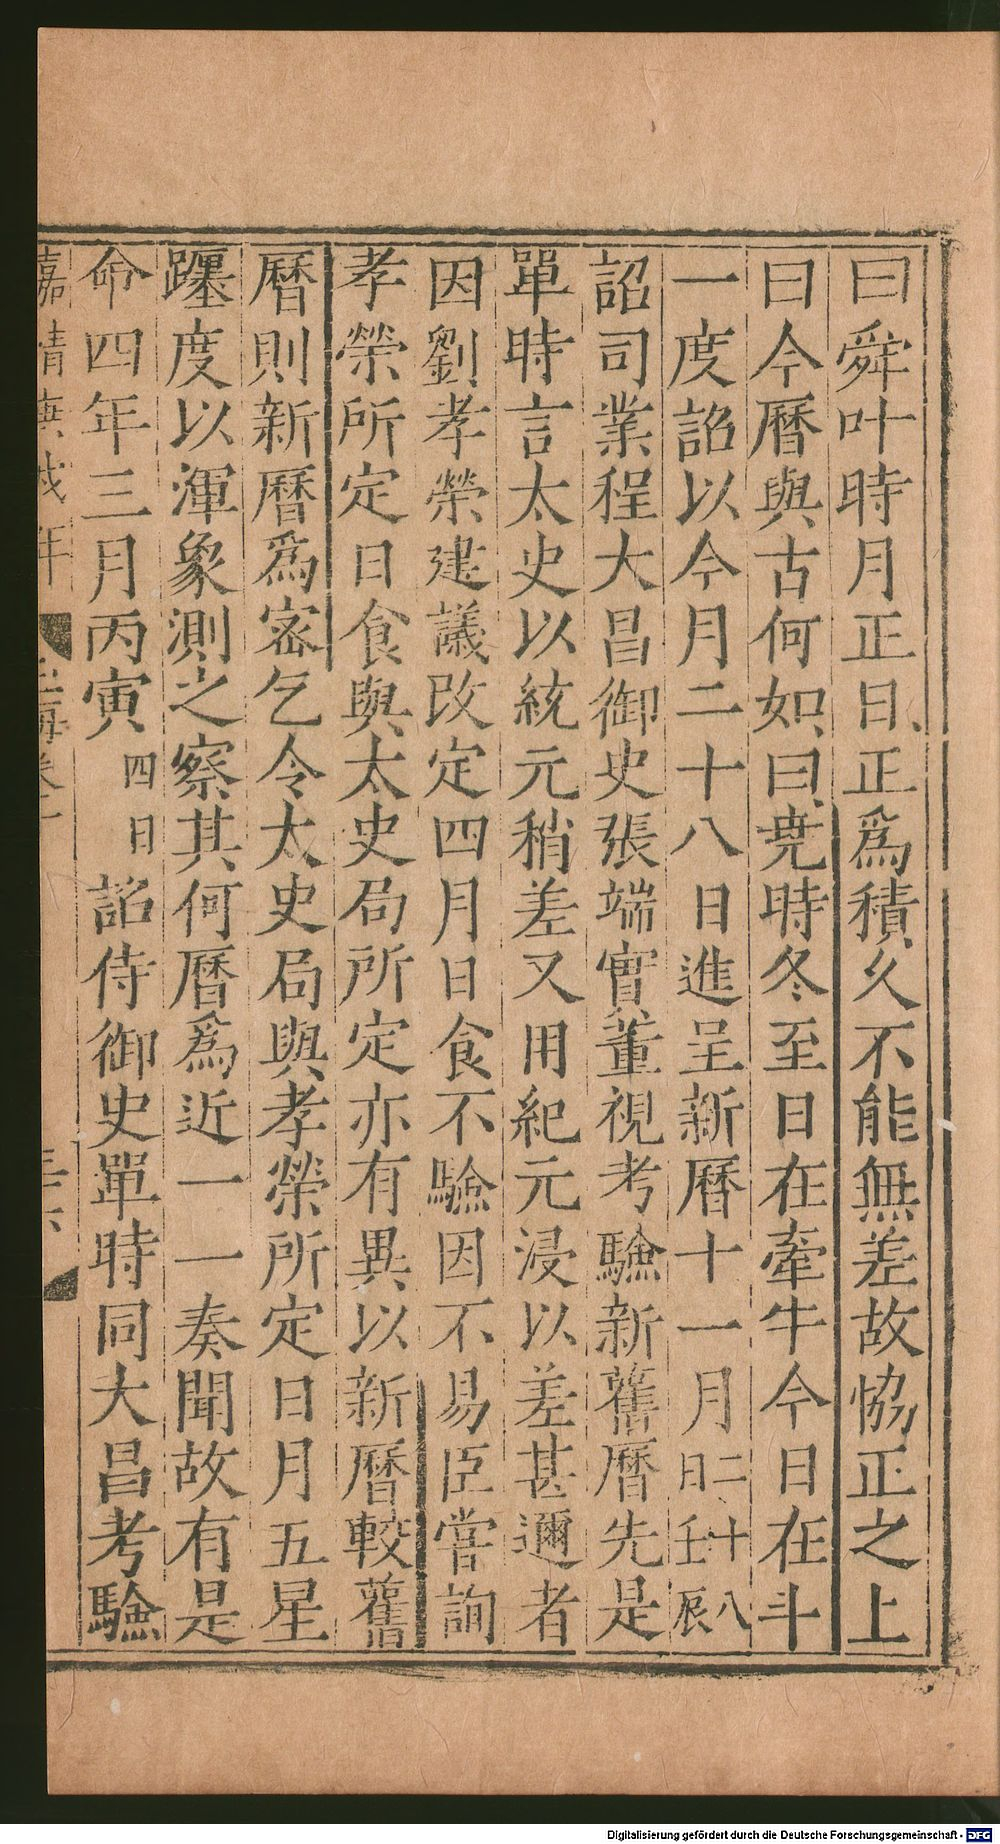 曰舜叶時月正日正爲積久不能無差故恊正之上
曰今曆與古何如曰堯時冬至日在牽牛今日在斗
一度詔以今月二十八日進呈新曆十一月二十八日壬辰
詔司業程大昌御史張端實董視考驗新舊曆先是
單時言太史以統元稍差又用紀元浸以差甚邇者
因劉孝榮建議改定四月日食不驗因不易臣嘗詢
孝榮所定日食與太史局所定亦有異以新曆較舊
曆則新曆爲宻乞令太史局與孝榮所定日月五星
躔度以渾象測之察其何曆爲近一一奏聞故有是
命四年三月丙寅四日詔侍御史單時同大昌考驗
嘉靖庚戌年 玉海卷十 三十六
Digitalisierung gefördert durch die Deutsche Forschungsgemeinschaft - DFG